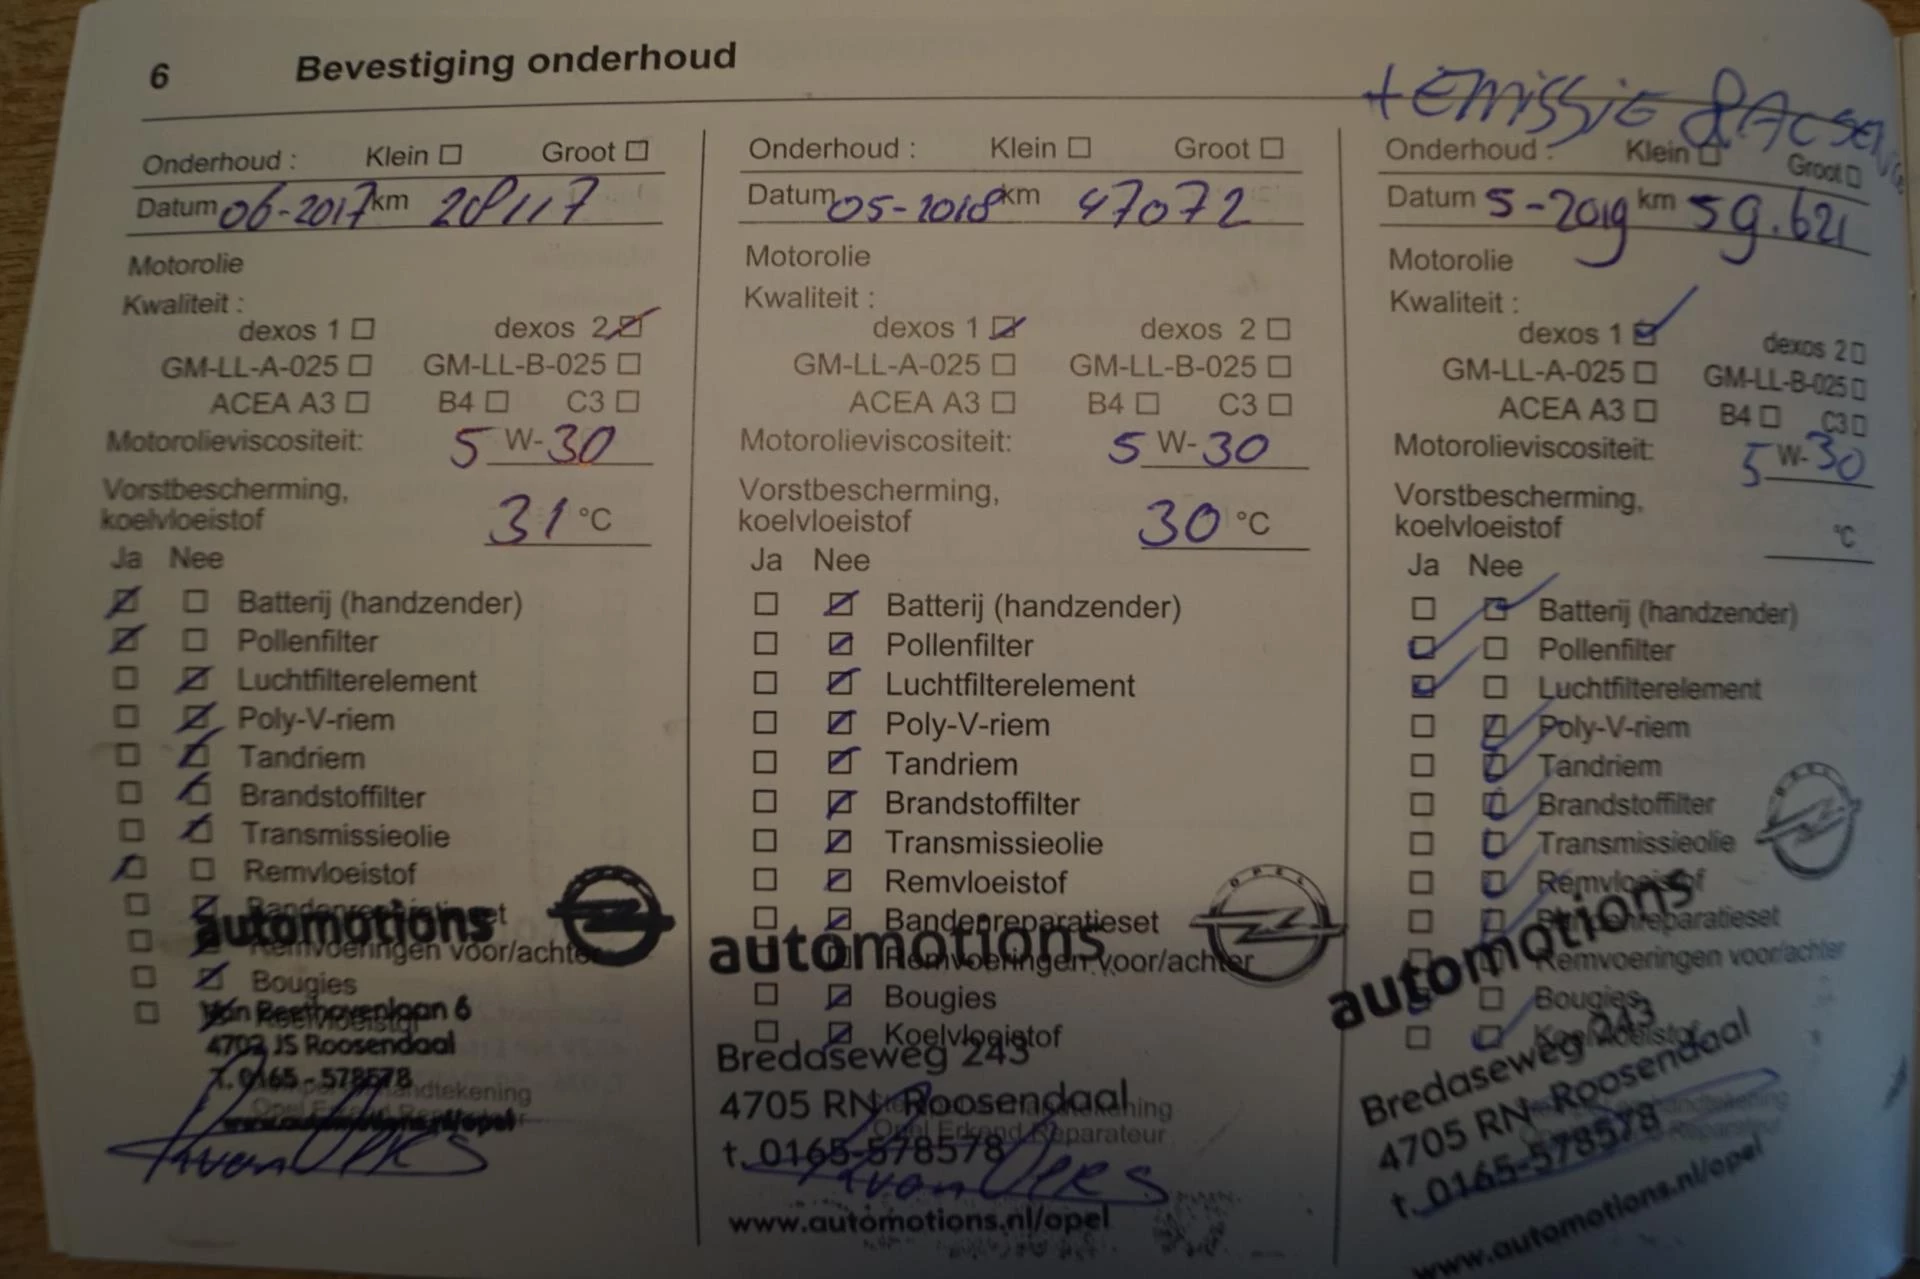 6 Bevestiging onderhoud
+ Emissie &
Onderhoud : Klein Groot
Datum 06-2017 km 28117
Motorolie
Kwaliteit :
dexos 1 dexos 2
GM-LL-A-025 GM-LL-B-025
ACEA A3 B4 C3
Motorolieviscositeit: 5 W-30
Vorstbescherming,
koelvloeistof 31 °C
Ja Nee
Batterij (handzender)
Pollenfilter
Luchtfilterelement
Poly-V-riem
Tandriem
Brandstoffilter
Transmissieolie
Remvloeistof
automotions
Remvoeringen voor/achter
Bougies
Van Beethovenlaan 6
4702 JS Roosendaal
T. 0165 - 578578
Onderhoud : Klein Groot
Datum 05-2018 km 47072
Motorolie
Kwaliteit :
dexos 1 dexos 2
GM-LL-A-025 GM-LL-B-025
ACEA A3 B4 C3
Motorolieviscositeit: 5 W-30
Vorstbescherming,
koelvloeistof 30 °C
Ja Nee
Batterij (handzender)
Pollenfilter
Luchtfilterelement
Poly-V-riem
Tandriem
Brandstoffilter
Transmissieolie
Remvloeistof
OPEL
Bandenreparatieset
automotions
Remvoeringen voor/achter
Bougies
Koelvloeistof
Bredaseweg 243
4705 RN Roosendaal
Opel Erkend Reparateur
t. 0165-578578
www.automotions.nl/opel
Onderhoud : Klein Groot
Datum 5-2019 km 59.621
Motorolie
Kwaliteit :
dexos 1 dexos 2
GM-LL-A-025 GM-LL-B-025
ACEA A3 B4 C3
Motorolieviscositeit: 5 W-30
Vorstbescherming,
koelvloeistof °C
Ja Nee
Batterij (handzender)
Pollenfilter
Luchtfilterelement
Poly-V-riem
Tandriem
Brandstoffilter
Transmissieolie
Remvloeistof
Bandenreparatieset
automotions
Remvoeringen voor/achter
Bougies
Koelvloeistof
Bredaseweg 243
4705 RN Roosendaal
t. 0165-578578
www.automotions.nl/opel